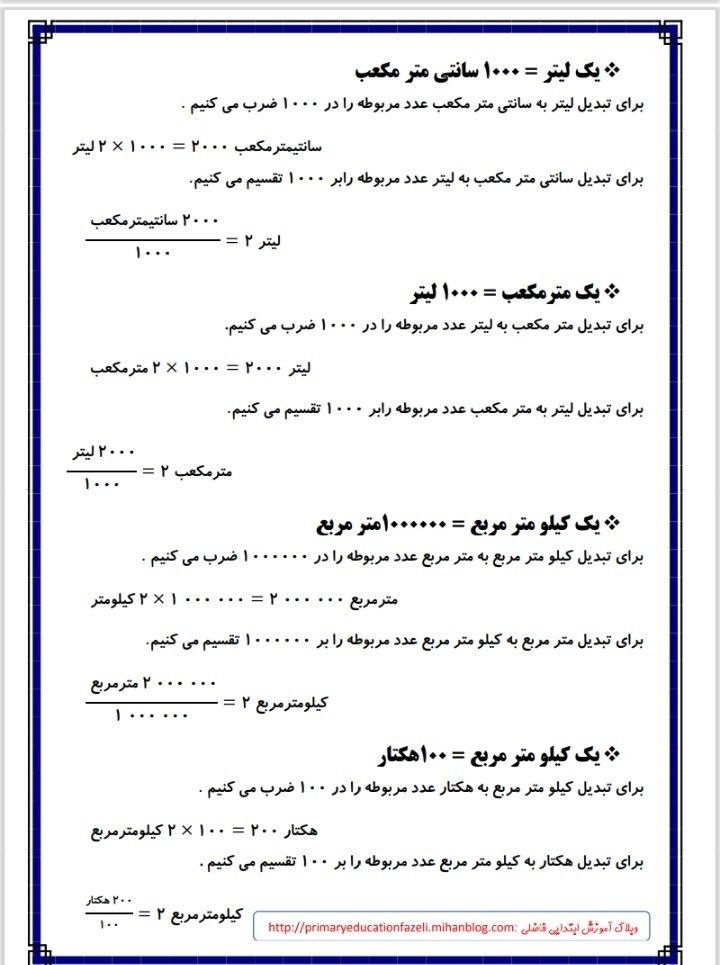 ❖ یک لیتر = ۱۰۰۰ سانتی متر مکعب
برای تبدیل لیتر به سانتی متر مکعب عدد مربوطه را در ۱۰۰۰ ضرب می کنیم .
۲ لیتر × ۱۰۰۰ = ۲۰۰۰ سانتیمترمکعب
برای تبدیل سانتی متر مکعب به لیتر عدد مربوطه رابر ۱۰۰۰ تقسیم می کنیم.
۲۰۰۰ سانتیمترمکعب
۱۰۰۰
= ۲ لیتر
❖ یک مترمکعب = ۱۰۰۰ لیتر
برای تبدیل متر مکعب به لیتر عدد مربوطه را در ۱۰۰۰ ضرب می کنیم.
۲ مترمکعب × ۱۰۰۰ = ۲۰۰۰ لیتر
برای تبدیل لیتر به متر مکعب عدد مربوطه رابر ۱۰۰۰ تقسیم می کنیم.
۲۰۰۰ لیتر
۱۰۰۰
= ۲ مترمکعب
❖ یک کیلو متر مربع = ۱۰۰۰۰۰۰متر مربع
برای تبدیل کیلو متر مربع به متر مربع عدد مربوطه را در ۱۰۰۰۰۰۰ ضرب می کنیم .
۲ کیلومتر × ۱ ۰۰۰ ۰۰۰ = ۲ ۰۰۰ ۰۰۰ مترمربع
برای تبدیل متر مربع به کیلو متر مربع عدد مربوطه را بر ۱۰۰۰۰۰۰ تقسیم می کنیم.
۲ ۰۰۰ ۰۰۰ مترمربع
۱ ۰۰۰ ۰۰۰
= ۲ کیلومترمربع
❖ یک کیلو متر مربع = ۱۰۰هکتار
برای تبدیل کیلو متر مربع به هکتار عدد مربوطه را در ۱۰۰ ضرب می کنیم .
۲ کیلومترمربع × ۱۰۰ = ۲۰۰ هکتار
برای تبدیل هکتار به کیلو متر مربع عدد مربوطه را بر ۱۰۰ تقسیم می کنیم .
۲۰۰ هکتار
۱۰۰
= ۲ کیلومترمربع
وبلاگ آموزش ابتدایی فاضلی :http://primaryeducationfazeli.mihanblog.com